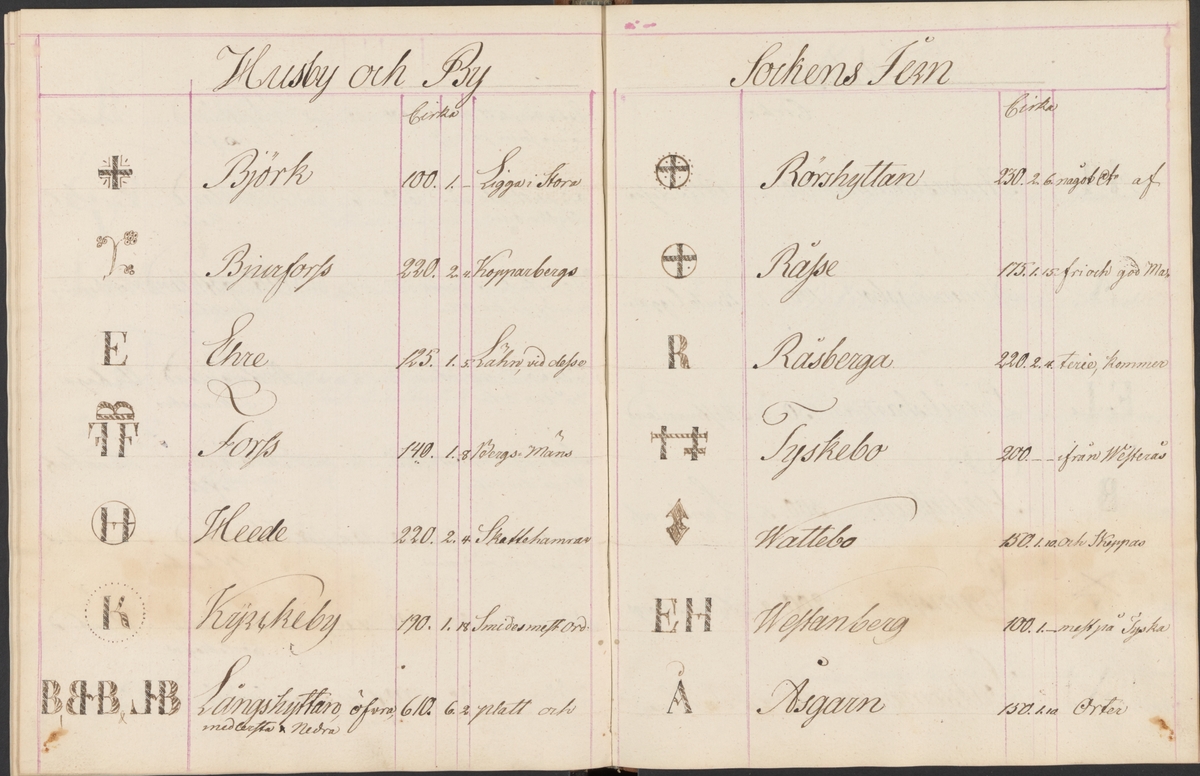 Husby och By
Cirka
Björk 100. 1. – Ligga i Stora
Bjurforss 220. 2. 4. Kopparbergs
E Ehre 125. 1. 5. Lähn, vid desse
B FF Forss 140. 1. 8. Bergs-Mäns
H Heede 220. 2. 4. Skattehamrar
K Kyrckeby 190. 1. 18. Smides mest Ord-
Långshyttan, öfvra, 610. 6. 2. platt och
medlersta & Nedra
Sockens Jern
Cirka
Rörshyttan 230. 2. 6. något Ct af
Råsse 175. 1. 15. fri och god Ma-
R Råsberga 220. 2. 4. terie, kommer
Tyskebo 200. – – ifrån Westerås
Wattebo 150. 1. 10. och Skeppas
EH Westanberg 100. 1. – mest på Tyska
Å Åsgarn 150. 1. 10. Orter